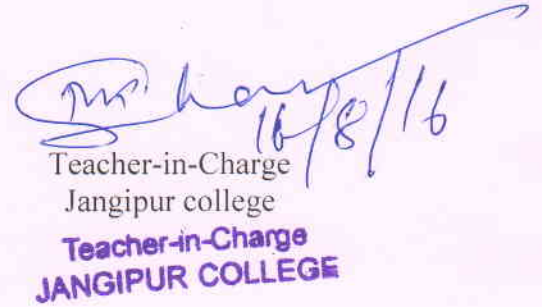 16/8/16
Teacher-in-Charge
Jangipur college
Teacher-in-Charge
JANGIPUR COLLEGE